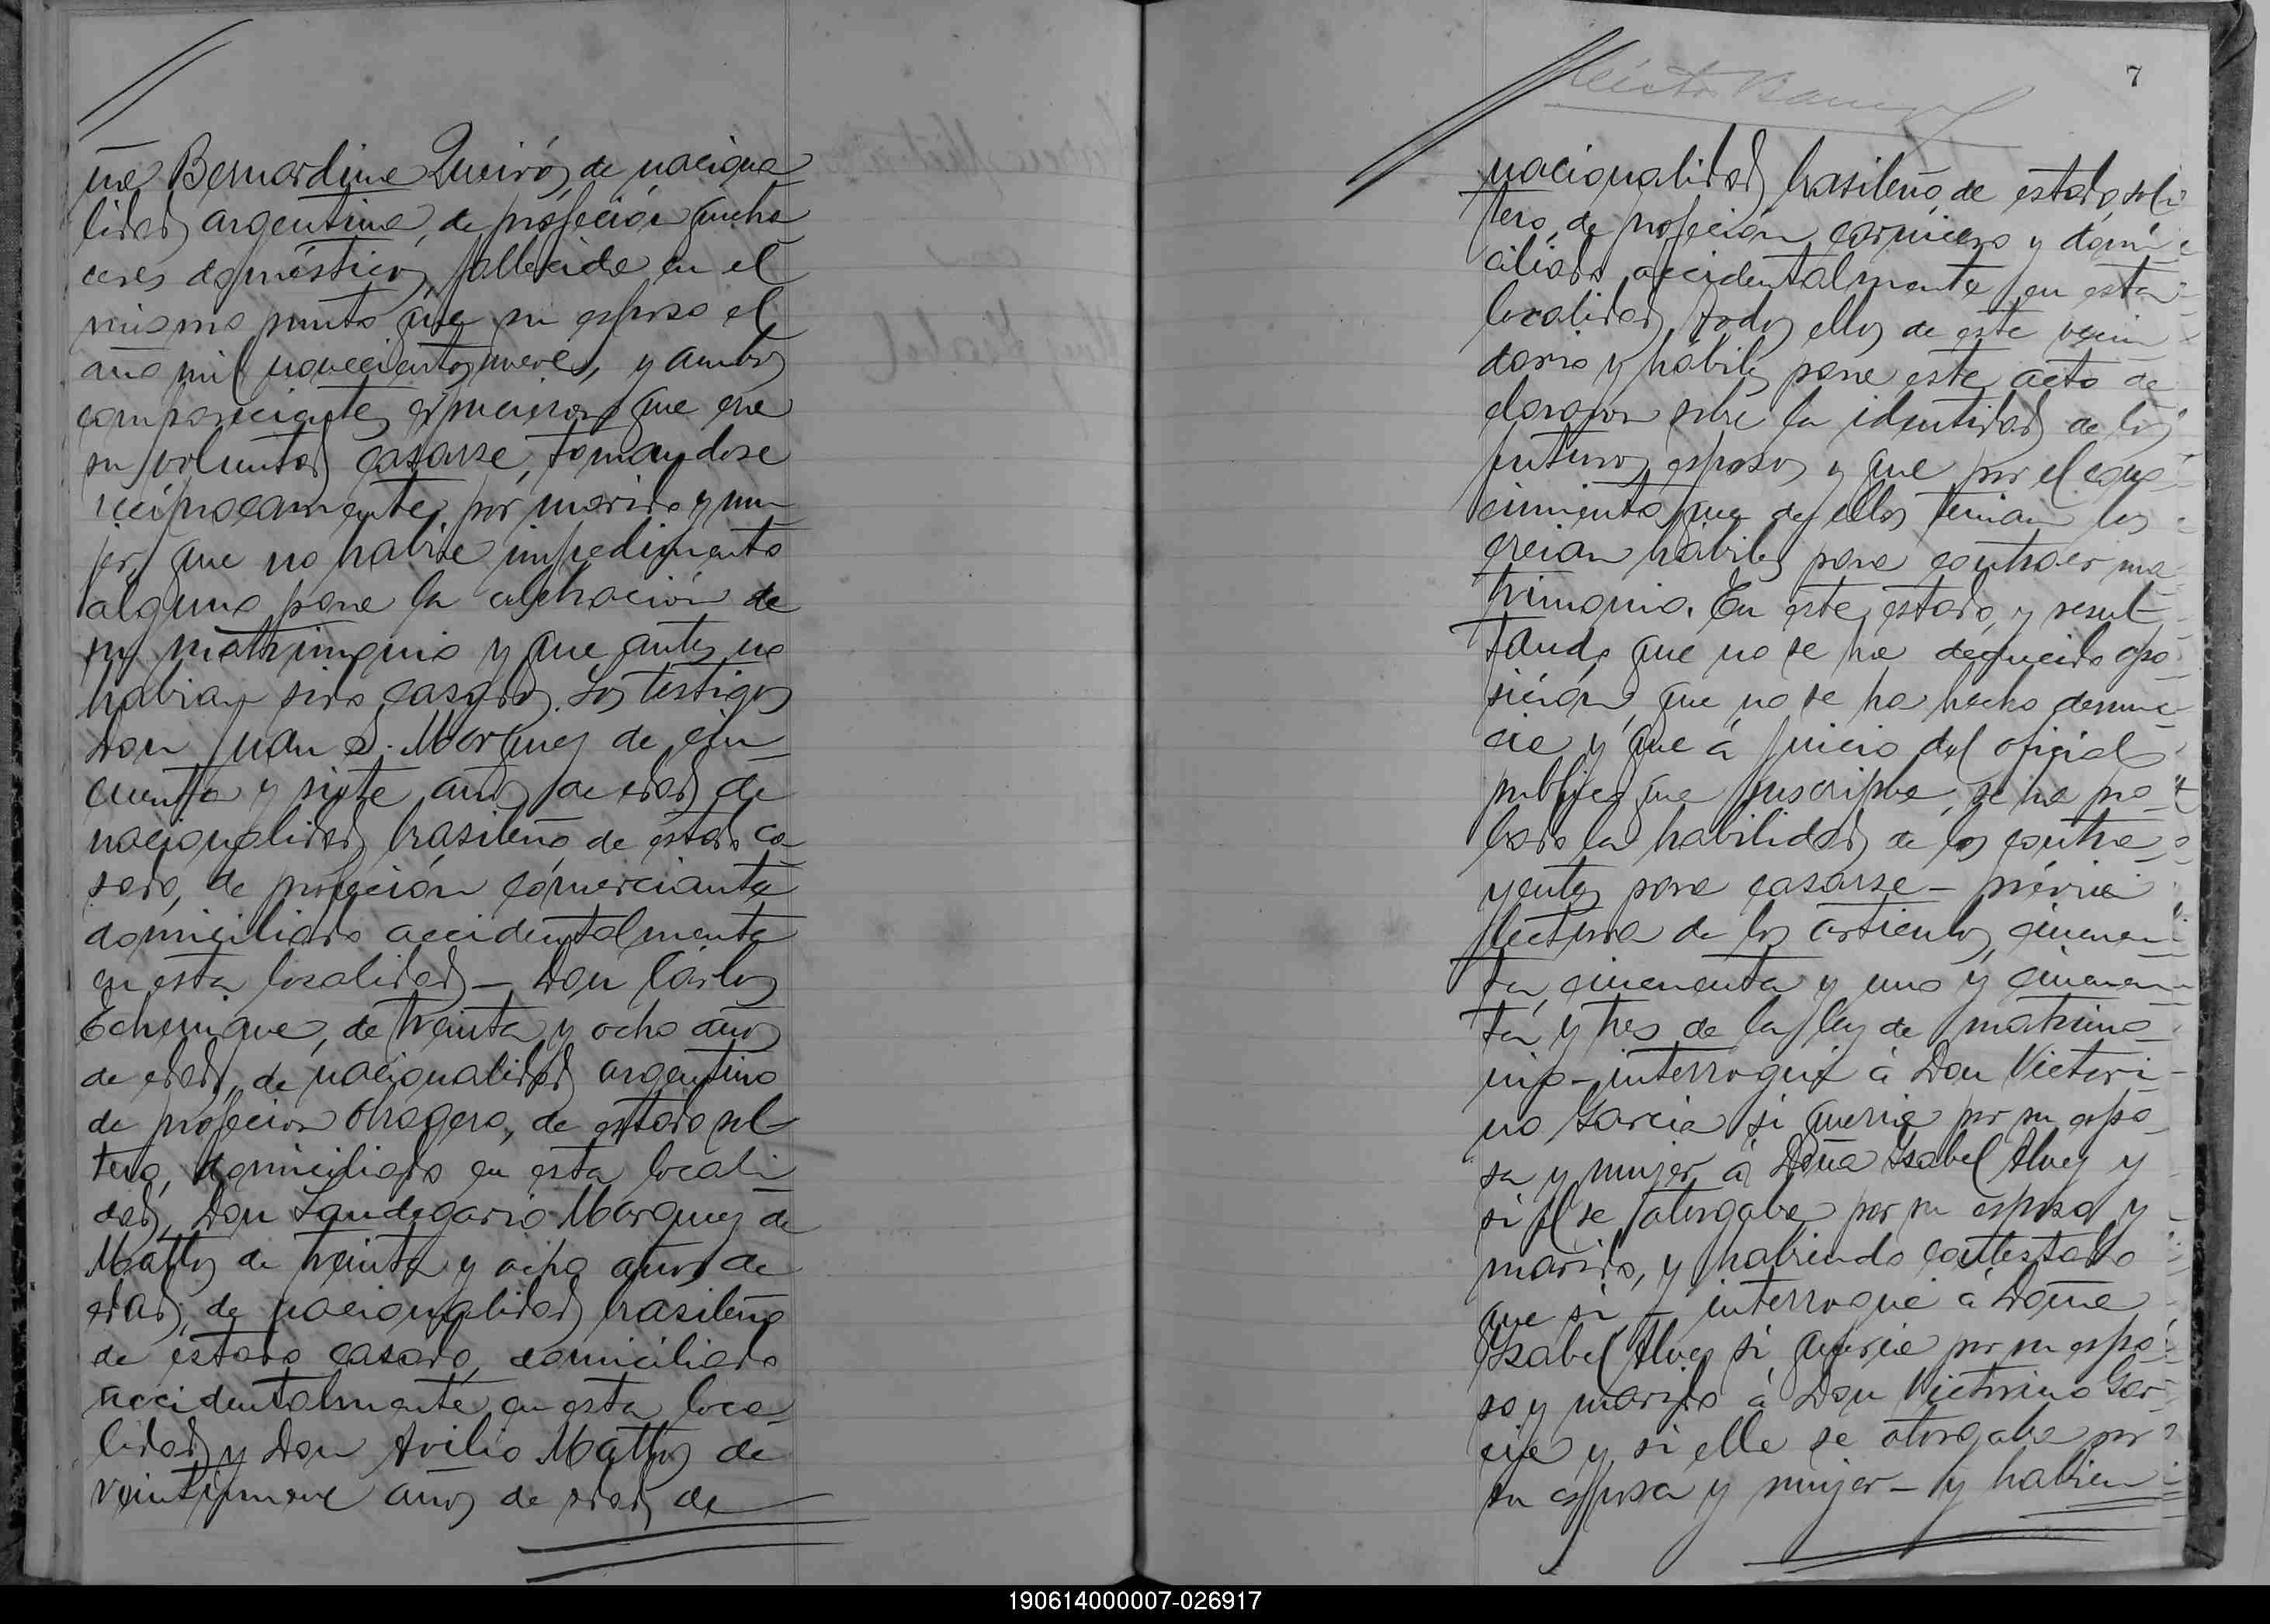 ña Bernardina Queiró, de naciona
lidad argentina, de profeción queha
ceres domésticos, fallecida en el
mismo punto que su esposo el
año mil novecientos nueve, y ambos
comparecientes espusieron que era
su voluntad casarse, tomandose
reciprocamente por marido y mu
jer, que no habia impedimento
alguno para la celebración de
su matrimonio y que antes no
habian sido casados. Los testigos
Don Juan S. Marques de cin
cuenta y siete años de edad de
nacionalidad brasileño de estado ca
sado, de profeción comerciante
domiciliado accidentalmente
en esta localidad – Don Cárlos
Echenique, de treinta y ocho años
de edad, de nacionalidad argentino
de profecion obragero, de estado sol
tero, domiciliado en esta locali
dad, Don Landegario Marques de
Mattos de treinta y ocho años de
edad, de nacionalidad brasileño
de estado casado, domiciliado
accidentalmente en esta loca
lidad y Don Avilio Mattos de
veintinueve años de edad, de
7
nacionalidad brasileño, de estado sol
tero, de profeción carnicero y domi
ciliado accidentalmente en esta
localidad, todos ellos de este vecin
dario y hábiles para este acto de
clararon sobre la identidad de los
futuros esposos y que por el cono
cimiento que de ellos tenian los
creian hábiles para contraer ma
trimonio. En este estado, y resul
tando que no se ha deducido opo
sición, que no se ha hecho denun
cia y que á juicio del oficial
publico que suscribe, se ha pro
bado la habilidad de los contra
yentes para casarse – prévia
lectura de los artículos cincuen
ta, cincuenta y uno y cincuen
ta y tres de la ley de matrimo
nio – interrogué á Don Victori
no Garcia si queria por su espo
sa y mujer á Doña Isabel Alves y
si él se otorgaba por su esposo y
marido, y habiendo contestado
que si – interrogué á Doña
Isabel Alves si queria por su espo
so y marido á Don Victorino Gar
cia y si ella se otorgaba por
su esposa y mujer – y habien
190614000007-026917